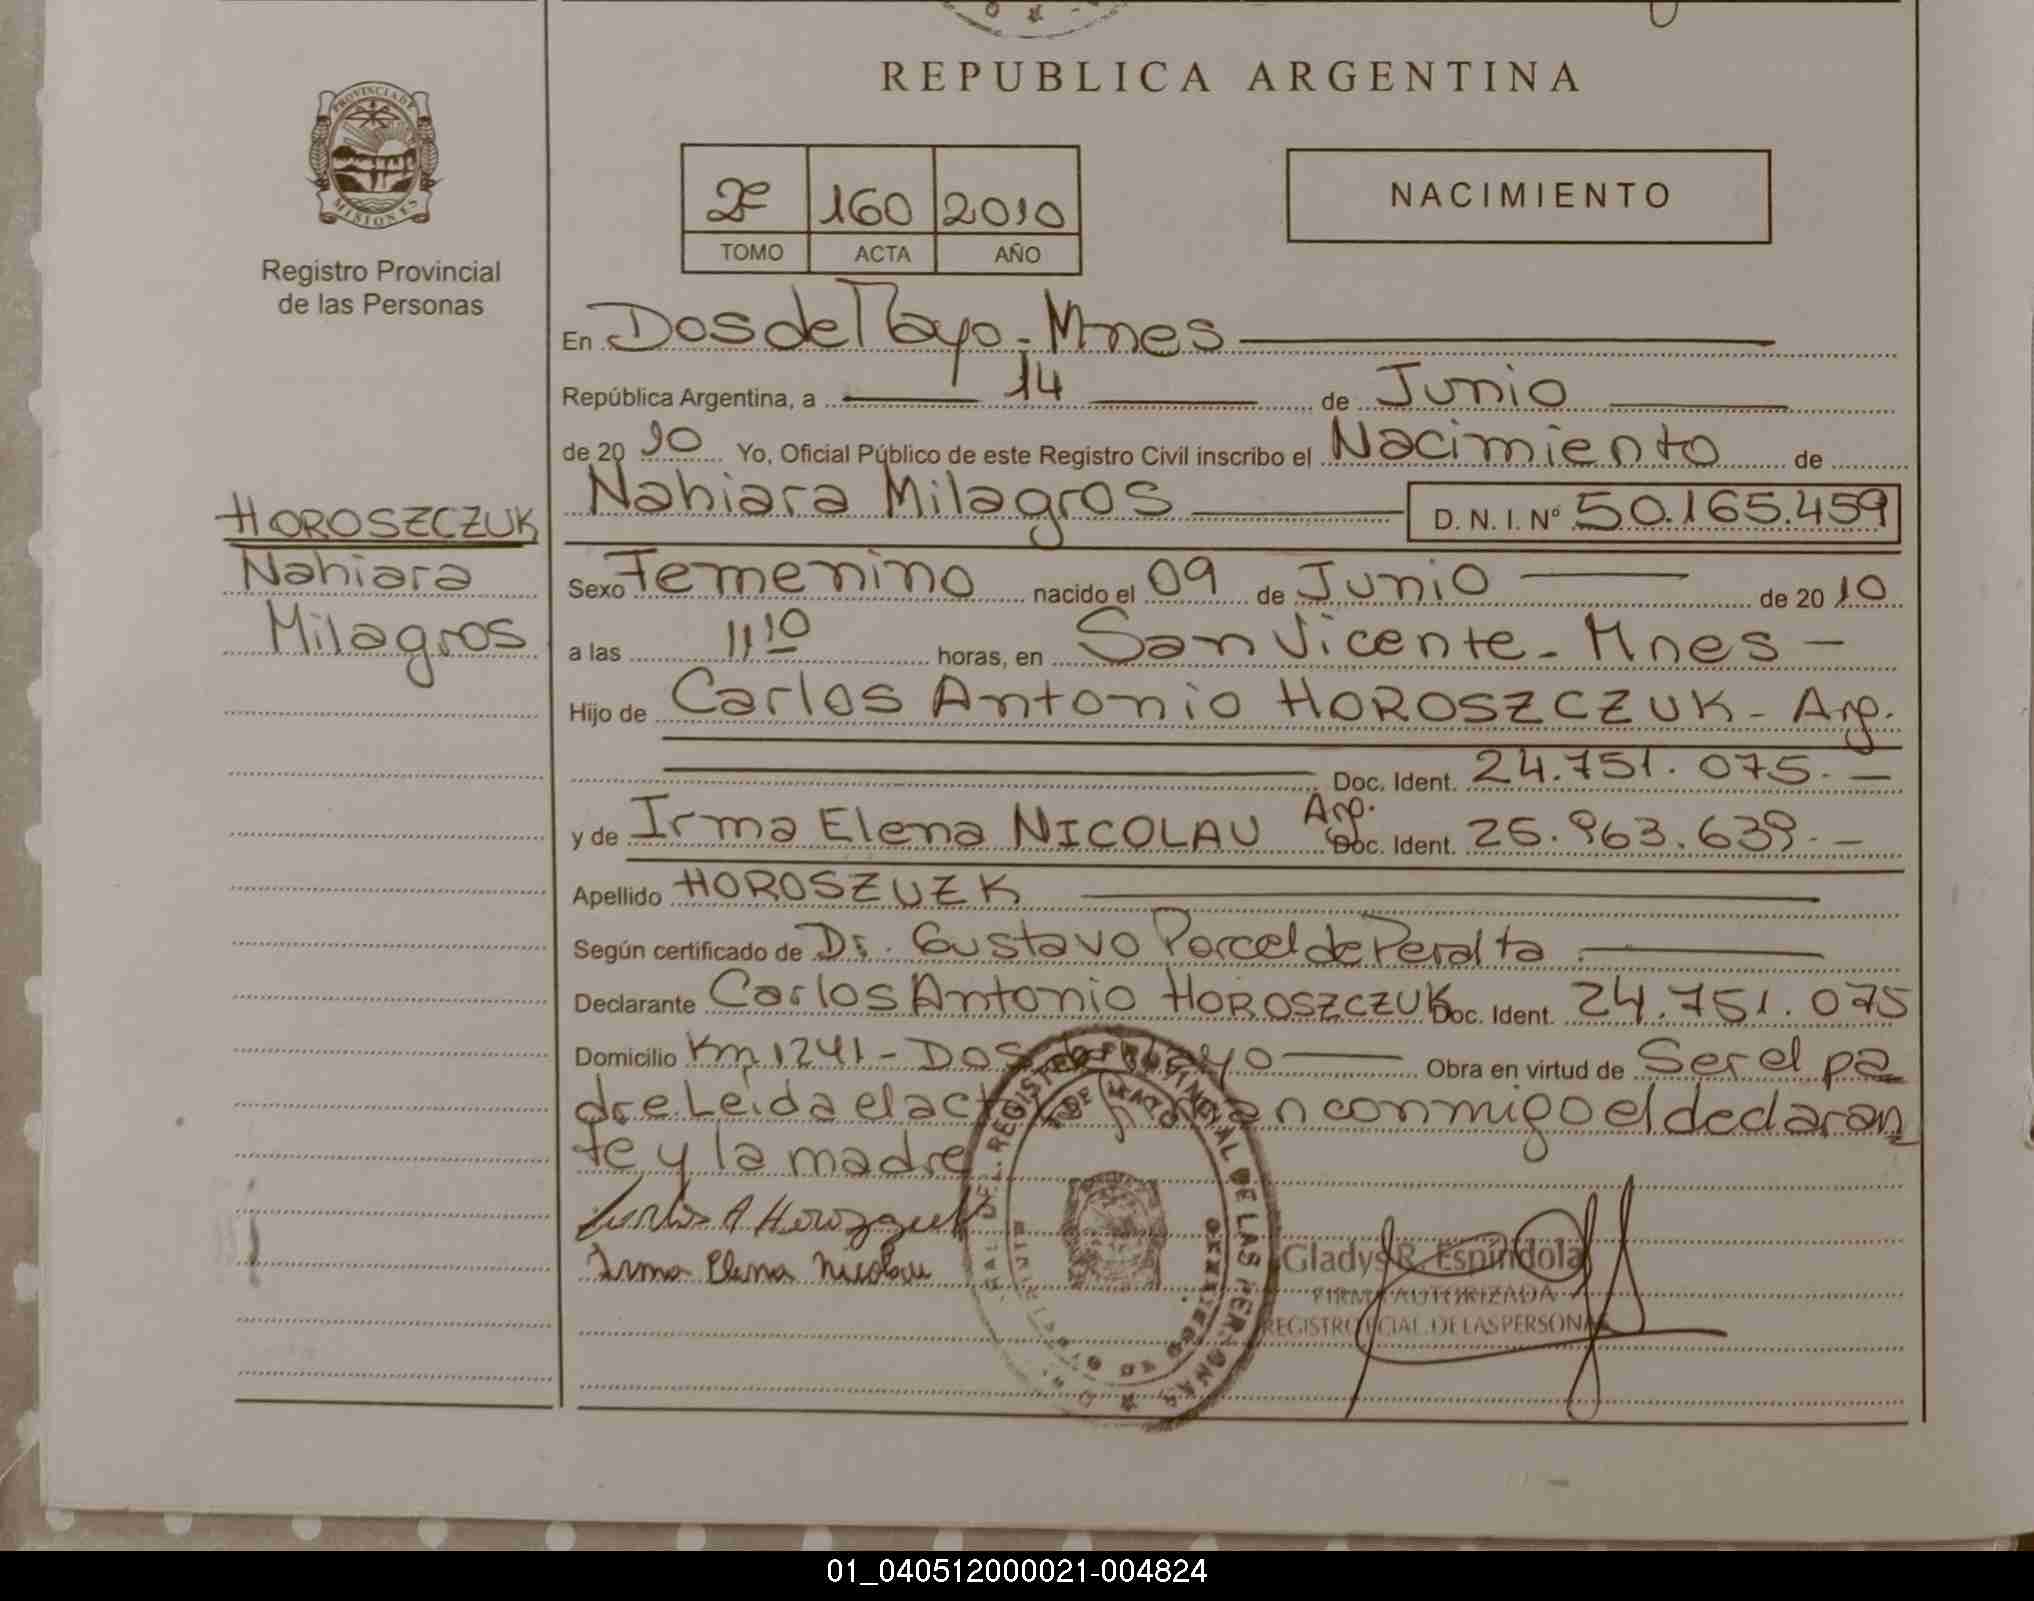 REPUBLICA ARGENTINA
PROVINCIA DE MISIONES
Registro Provincial
de las Personas
2º 160 2010
TOMO ACTA AÑO
NACIMIENTO
En Dos de Mayo - Mnes
República Argentina, a 14 de Junio
de 2010 Yo, Oficial Público de este Registro Civil inscribo el Nacimiento de
Nahiara Milagros D. N. I. Nº 50.165.459
HOROSZCZUK
Nahiara
Milagros
Sexo Femenino nacido el 09 de Junio de 2010
a las 11,10 horas, en San Vicente - Mnes -
Hijo de Carlos Antonio HOROSZCZUK - Arg.
Doc. Ident. 24.751.075. -
y de Irma Elena NICOLAU Arg. Doc. Ident. 25.963.639. -
Apellido HOROSZUZK
Según certificado de Dr. Gustavo Porcel de Peralta
Declarante Carlos Antonio HOROSZCZUK Doc. Ident. 24.751.075
Domicilio Km 1241 - Dos de Mayo Obra en virtud de Ser el pa
dre. Leida el acta firman conmigo el declaran
te y la madre
Carlos A
Irma Elena Nicolau
REGISTRO PROVINCIAL DE LAS PERSONAS
2 DE MAYO
Gladys R. Espíndola
FIRMA AUTORIZADA
REGISTRO PCIAL. DE LAS PERSONAS
01_040512000021-004824